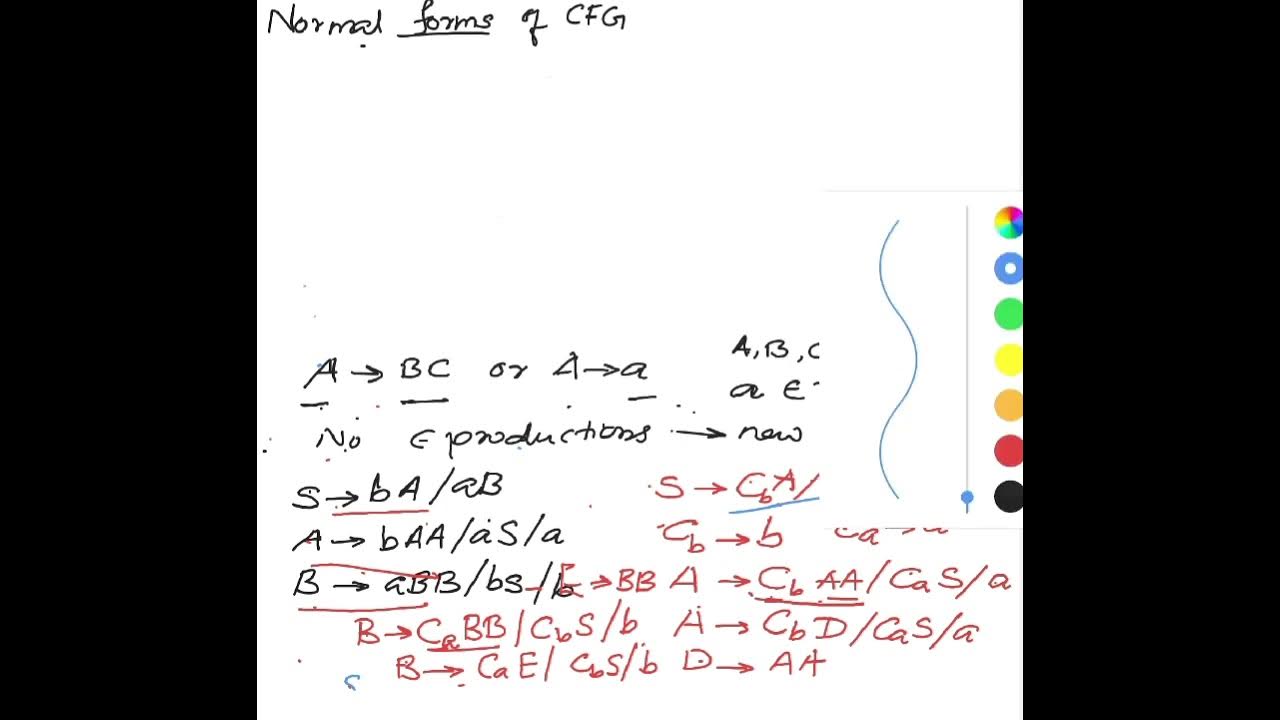 Normal forms of CFG
A → BC or A → a A, B, C
a ∈
No ∈ productions → new
S → bA/aB S → CbA/
A → bAA/aS/a Cb → b Ca → a
B → aBB/bS/b E → BB A → CbAA/CaS/a
B → CaBB/CbS/b A → CbD/CaS/a
B → CaE/CbS/b D → AA
S